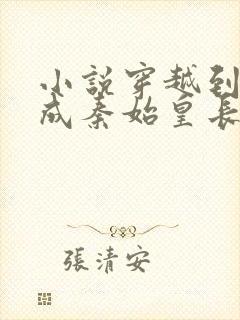 小說穿越到
成秦始皇長
張清安